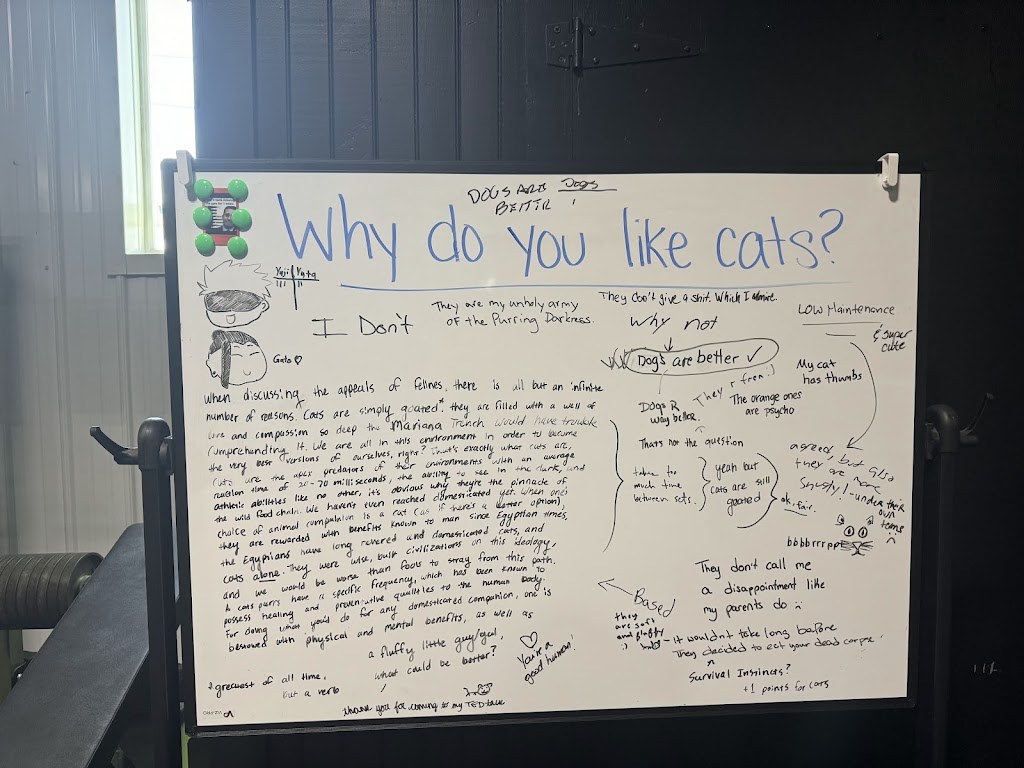 DOGS ARE Dogs
BETTER !
Why do you like cats?
Yuji Yuta
Gato ♡
I Don't
They are my unholy army
OF the Purring Darkness.
They don't give a shit. Which I admire.
Why not
Dog's are better ✓
LOW Maintenance
& super
cute
My cat
has thumbs
The orange ones
are psycho
They r fren :)
Dogs R
way better
That's not the question
taken too
much time
between sets.
yeah but
cats are still
goated
ok. fair.
agreed, but also
they are more
under their
own
terms
bbbbrrrppp
When discussing the appeals of felines, there is all but an infinite
number of reasons. Cats are simply goated*. they are filled with a well of
love and compassion so deep the Mariana Trench would have trouble
comprehending it. We are all in this environment in order to become
the very best versions of ourselves, right? That's exactly what cats are.
Cats are the apex predators of their environments with an average
reaction time of 20-70 milliseconds, the ability to see in the dark, and
athletic abilities like no other, it's obvious why they're the pinnacle of
the wild food chain. We haven't even reached domesticated yet. When one's
choice of animal companion is a cat (as if there's a better option),
they are rewarded with benefits known to man since Egyptian times.
the Egyptians have long revered and domesticated cats, and
cats alone. They were wise, built civilizations on this ideology,
and we would be worse than fools to stray from this path.
A cats purrs have a specific frequency, which has been known to
possess healing and preventative qualities to the human body.
For doing what you'd do for any domesticated companion, one is
bestowed with physical and mental benefits, as well as
a fluffy little guy/gal,
what could be better?
*greatest of all time,
but a verb
thank you for coming to my TED talk
♡
You're a
good human!
Based
they
are soft
and fluffy
:)
They don't call me
a disappointment like
my parents do :
it wouldn't take long before
They decided to eat your dead corpse!
Survival Instincts?
+1 points for cats